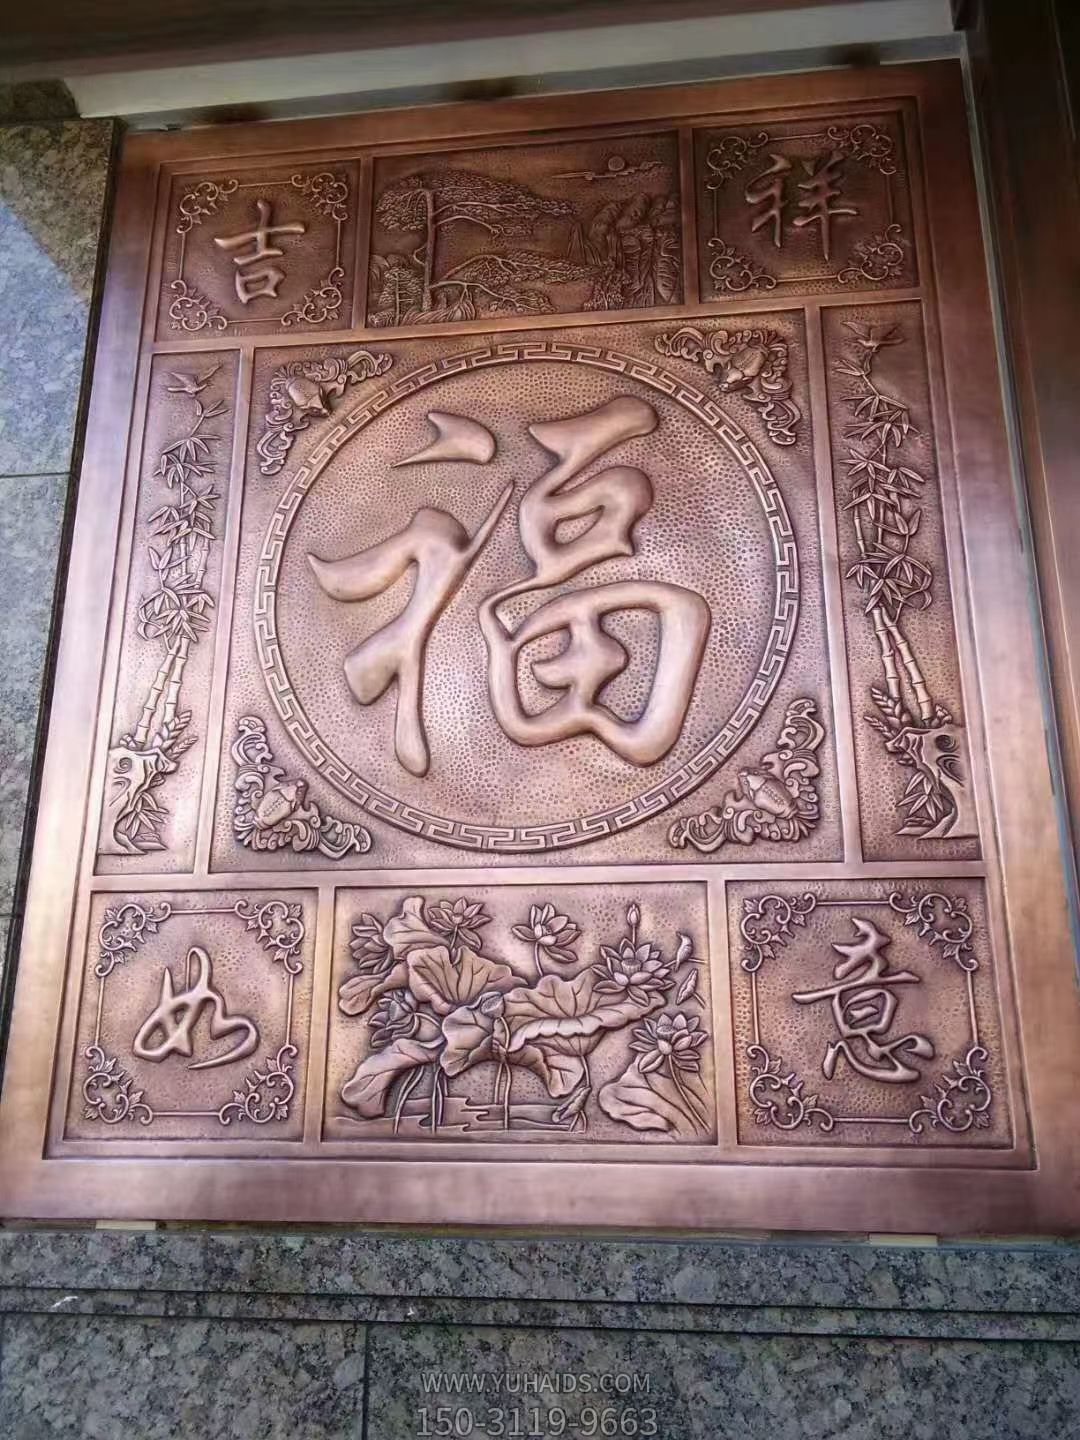 吉 祥
福
如 意
WWW.YUHAIDS.COM
150-3119-9663